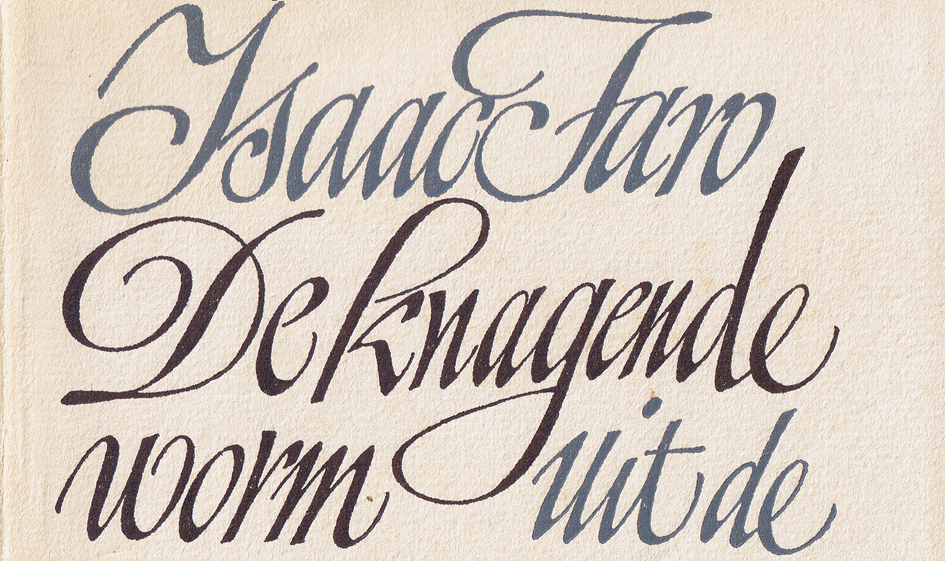 Isaac Faro
De knagende
worm uit de